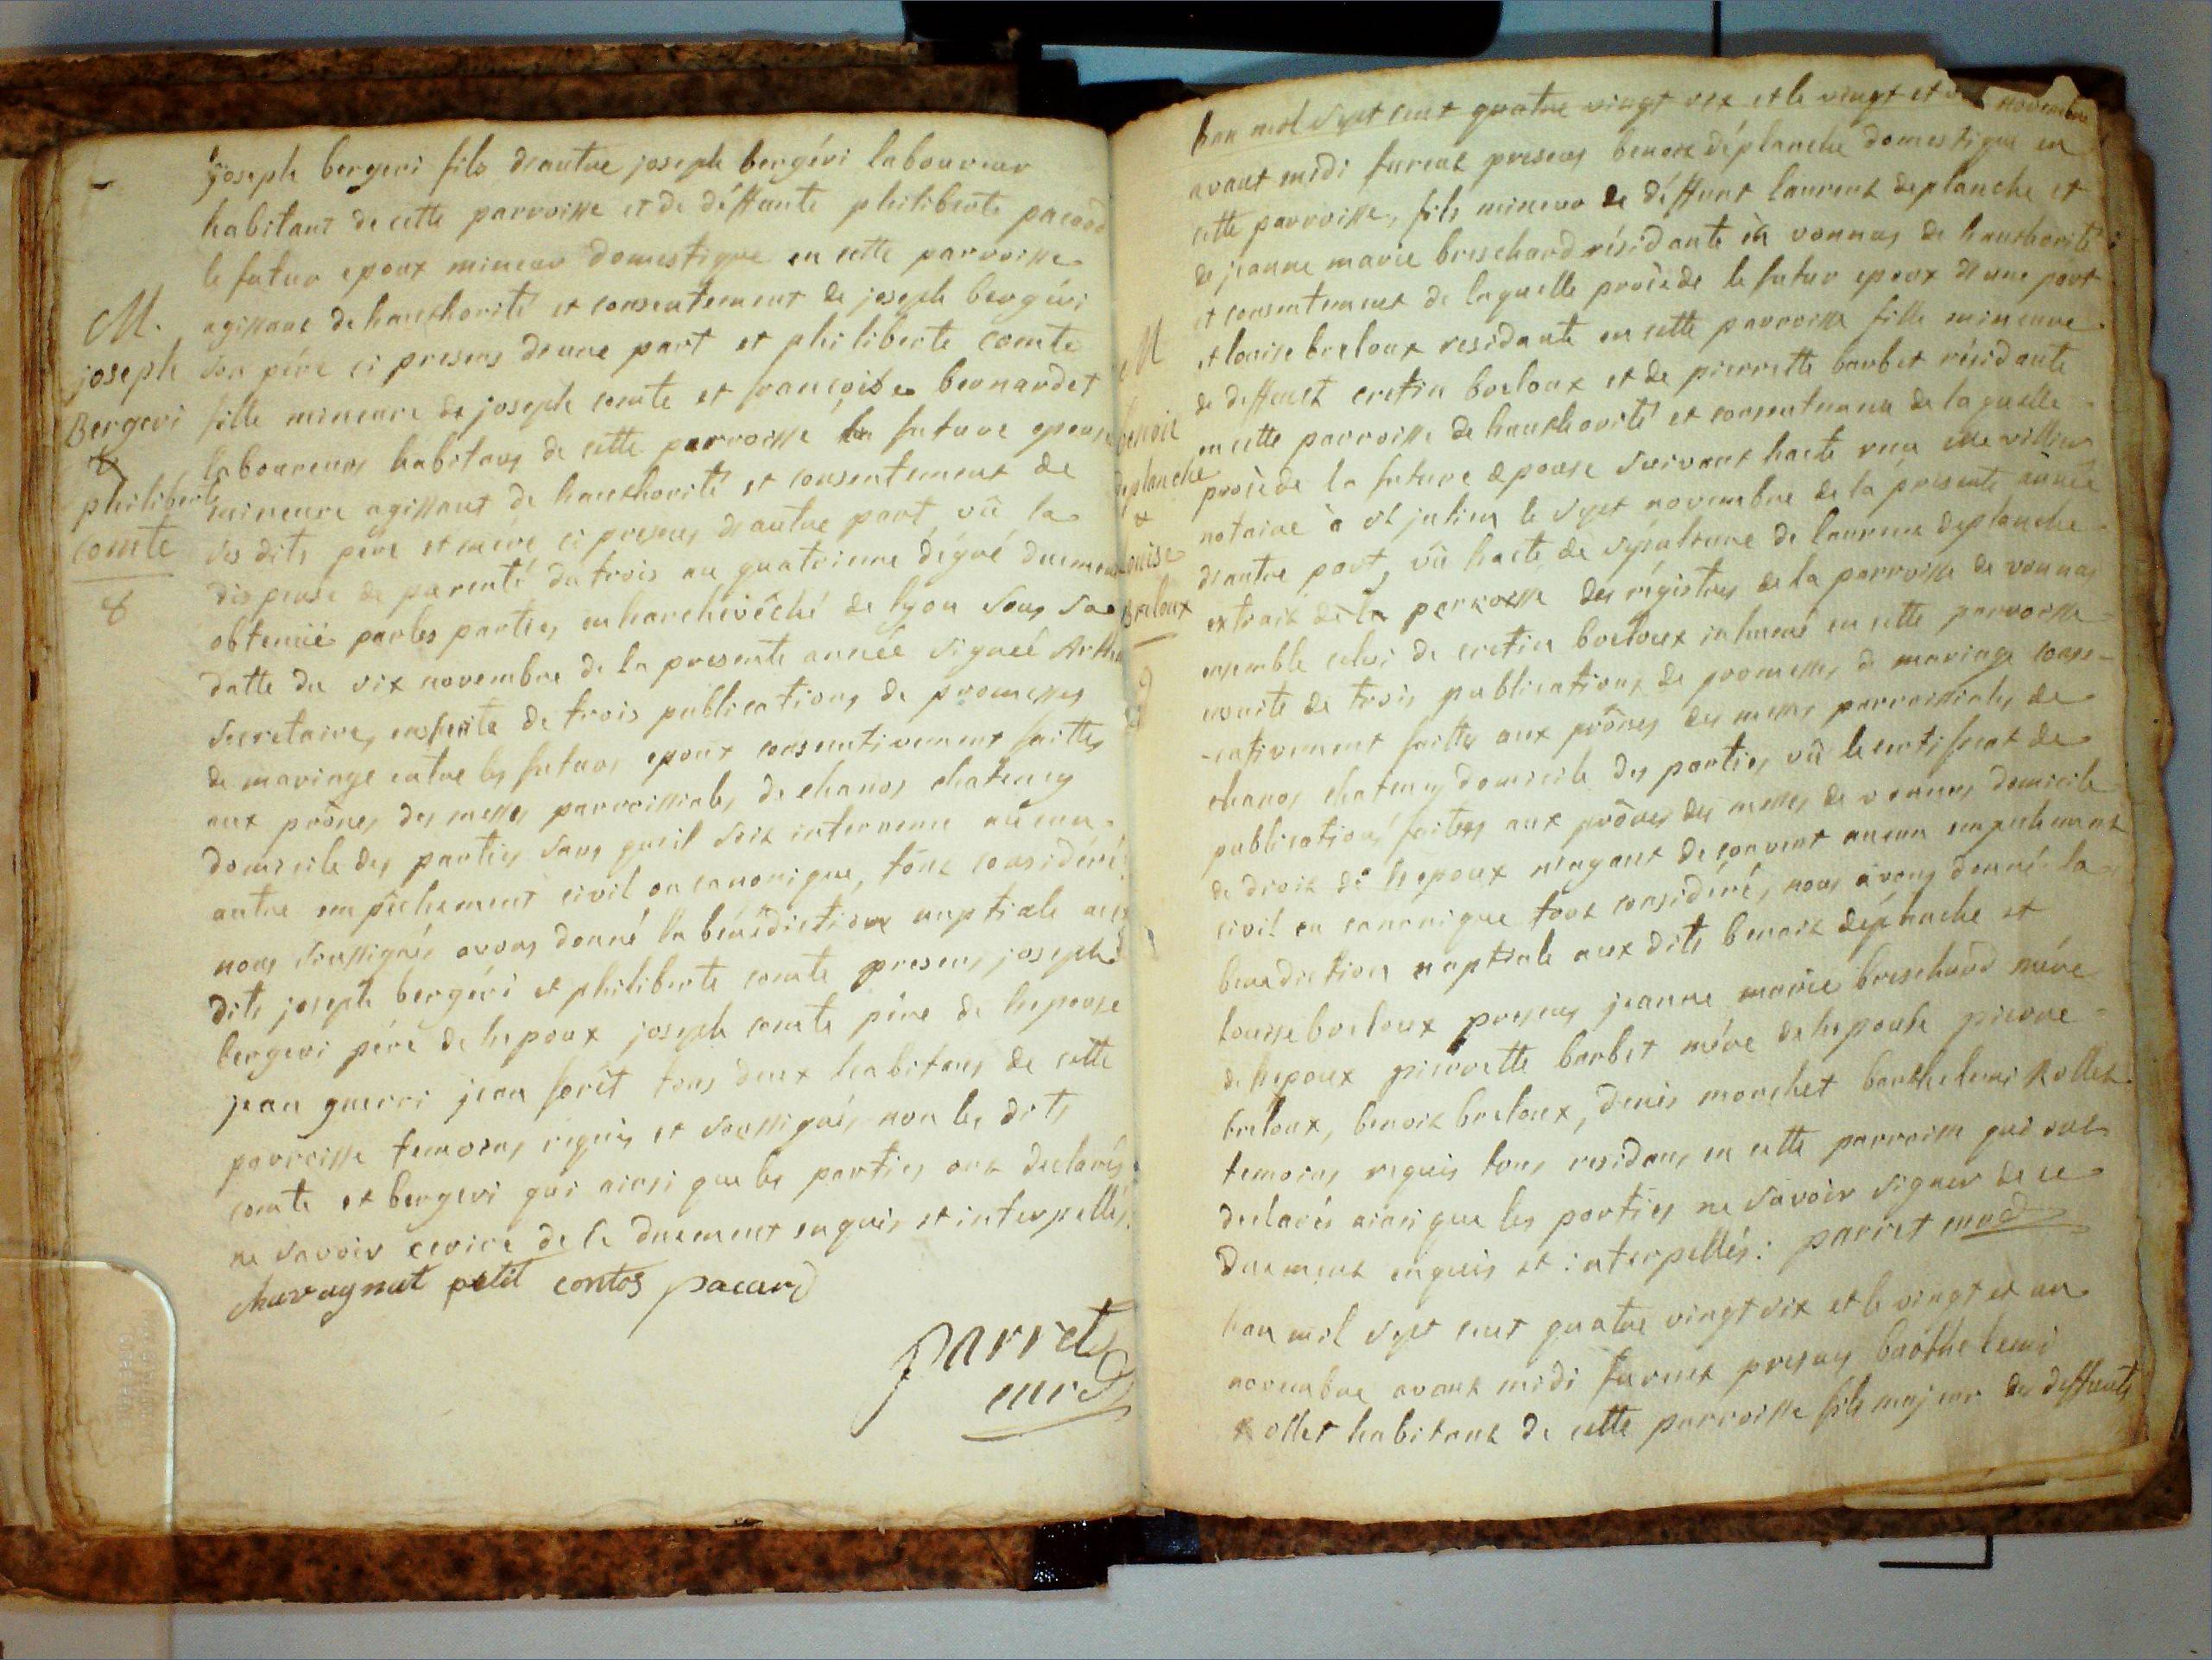 joseph bergeri fils d'autre joseph bergéri laboureur
habitant de cette parroisse et de déffunte philiberte pacard
le futur epoux mineur domestique en cette parroisse
agissant de hauthorité et consentement de joseph bergéri
son pére ci presens d'une part et philiberte comte
fille mineure de joseph comte et françoise bernardet
laboureurs habitans de cette parroisse la future epouse
mineure agissant de hauthorité et consentement de
ses dits pére et mére ci presens d'autre part, vû la
dispense de parenté du trois au quatrieme dégré duement
obtenuë par les parties en harchevêché de lyon sous sa
datte du six novembre de la presente année signée
secretaire, ensuite de trois publications de promesses
de mariage entre les futurs epoux consecutivement faittes
aux prônes des messes parroissiales de chanos chatenay
domicile des parties sans qu'il soit intervenu aucun
autre empêchement civil ou canonique, tout consideré
nous soussignés avons donné la bénédiction nuptiale aus
dits joseph bergéri et philiberte comte presens joseph
bergeri pére de hepoux joseph comte pére de hepouse
jean guerri jean forêt tous deux habitans de cette
parroisse temoins requis et soussignés non les dits
comte et bergeri qui ainsi que les parties ont declarés
ne savoir ecrire de ce duement enquis et interpellés
chavagnat petit contos pacard
parret
curé
M.
joseph
Bergeri
&
philiberte
comte
han mil sept cent quatre vingt six et le vingt et un novembre
avant midi furent presens benoit déplanche domestique en
cette parroisse, fils mineur de déffunt laurent deplanche et
de jeanne marie brischard résidante en vonnas de hauthorité
et consentement de laquelle procède le futur epoux d'une part
et louise breloux residante en cette parroisse fille mineure
de deffunt cretin breloux et de pierrette barbet résidante
en cette parroisse de hauthorité et consentement de laquelle
procède la future epouse suivant hacte reçu
notaire à st julien le sept novembre de la présente année
d'autre part, vû hacte de sépulture de laurent deplanche
extrait de la parroisse des régistres de la parroisse de vonnas
ensemble celui de cretin breloux inhumé en cette parroisse
ensuite de trois publications de promesses de mariage conse-
-cutivement faittes aux prônes des messes parroissiales de
chanos chatenay domicile des parties vû le certificat de
publications faittes aux prônes des messes de vonnas domicile
de droit de hepoux n'ayant decouvert aucun empechement
civil ou canonique tout consideré, nous avons donné la
benediction nuptiale aux dits benoit déplanche et
louise breloux presens jeanne marie brischard mére
de hepoux pierrette barbet mére de hepouse pierre
breloux, benoit breloux, denis morchet barthelemi Rollet
temoins requis tous residans en cette parroisse qui ont
declarés ainsi que les parties ne savoir signer de ce
duement enquis et interpellés: parret curé
han mil sept cent quatre vingt six et le vingt et un
novembre avant midi furent presens barthelemi
Rollet habitant de cette parroisse fils majeur de deffunts
M
benoit
deplanche
&
louise
Breloux